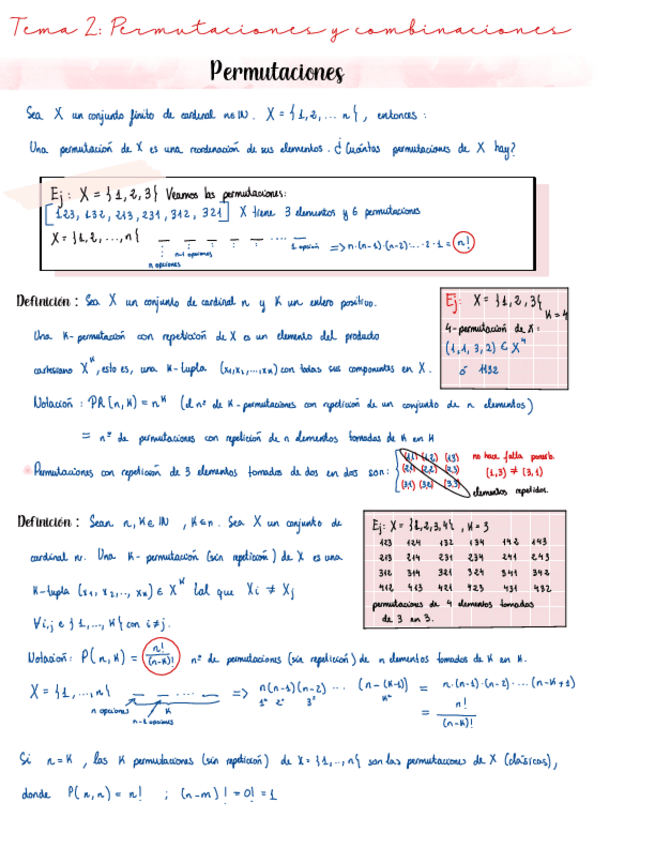 Tema 2: Permutaciones y combinaciones
Permutaciones
Sea X un conjunto finito de cardinal n∈ℕ. X = {1,2,... n}, entonces:
Una permutación de X es una reordenación de sus elementos. ¿Cuántas permutaciones de X hay?
Ej: X = {1,2,3} Veamos las permutaciones:
[123, 132, 213, 231, 312, 321] X tiene 3 elementos y 6 permutaciones
X = {1,2,...,n} _ _ _ _ _ ..... _ => n·(n-1)·(n-2):...·2·1 = n!
n opciones n-1 opciones 1 opción
Definición: Sea X un conjunto de cardinal n y K un entero positivo.
Una K-permutación con repetición de X es un elemento del producto
cartesiano X^K, esto es, una K-tupla (x₁,x₂,...,xₖ) con todas sus componentes en X.
Ej: X = {1,2,3} K=4
4-permutación de X:
(1,1,3,2) ∈ X⁴
ó 1132
Notación: PR(n,K) = n^K (el nº de K-permutaciones con repetición de un conjunto de n elementos)
= nº de permutaciones con repetición de n elementos tomadas de K en K
* Permutaciones con repetición de 3 elementos tomados de dos en dos son:
(1,1) (1,2) (1,3)
(2,1) (2,2) (2,3)
(3,1) (3,2) (3,3)
no hace falta
(1,3) ≠ (3,1)
elementos repetidos.
Definición: Sean n,K∈ℕ, K≤n. Sea X un conjunto de
cardinal n. Una K-permutación (sin repetición) de X es una
K-tupla (x₁, x₂,..., xₖ) ∈ X^K tal que Xi ≠ Xj
∀i,j ∈ {1,..., K} con i≠j.
Ej: X = {1,2,3,4}, K=3
123 124 132 134 142 143
213 214 231 234 241 243
312 314 321 324 341 342
412 413 421 423 431 432
permutaciones de 4 elementos tomados
de 3 en 3.
Notación: P(n,K) = n!/(n-K)! nº de permutaciones (sin repetición) de n elementos tomados de K en K.
X = {1,...,n} _ _ .... _ => n(n-1)(n-2) ... (n-(K-1)) = n·(n-1)·(n-2)·...(n-K+1)
n opciones n-1 opciones K 1º 2º 3º Kº
= n!/(n-K)!
Si n=K, las K permutaciones (sin repetición) de X={1,..,n} son las permutaciones de X (clásicas),
donde P(n,n) = n! ; (n-m)! = 0! = 1